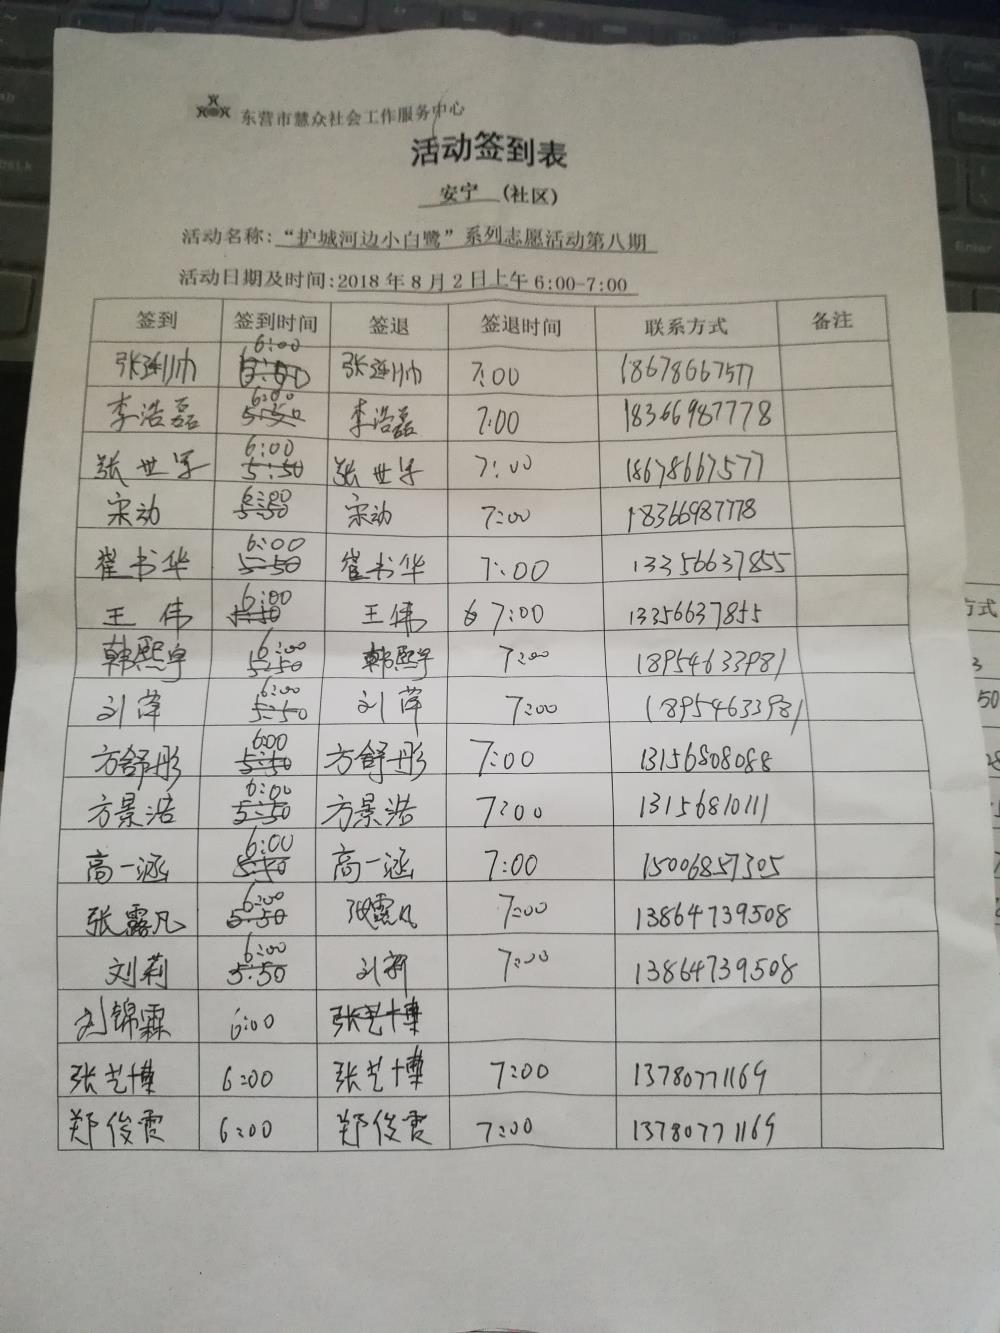 东营市慧众社会工作服务中心
活动签到表
安宁 (社区)
活动名称:“护城河边小白鹭”系列志愿活动第八期
活动日期及时间:2018年8月2日上午6:00-7:00
签到 签到时间 签退 签退时间 联系方式 备注
6:00
张 7:00 18678667577
6:00
李浩磊 5:50 李浩磊 7:00 18366987778
6:00
张世宇 5:50 张世宇 7:00 18678667577
6:00
宋动 5:50 宋动 7:00 18366987778
6:00
崔书华 5:50 崔书华 7:00 13356637855
6:00
王伟 5:50 王伟 7:00 13356637855
6:00
韩熙宇 5:50 韩熙宇 7:00 18954633981
6:00
刘萍 5:50 刘萍 7:00 18954633981
6:00
方舒彤 5:50 方舒彤 7:00 13156808088
6:00
方景浩 5:50 方景浩 7:00 13156810111
6:00
高一涵 5:50 高一涵 7:00 15006857305
6:00
张露凡 5:50 张露凡 7:00 13864739508
6:00
刘莉 5:50 刘莉 7:00 13864739508
刘锦霖 6:00 张艺博
张艺博 6:00 张艺博 7:00 13780771169
郑俊霞 6:00 郑俊霞 7:00 13780771169
方式